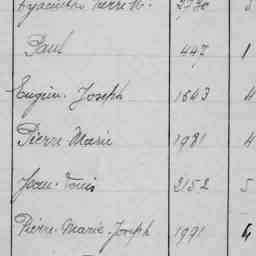 Hyacinthe Pierre M. 2730
Paul 447 1
Eugène Joseph 1643 4
Pierre Marie 1981 4
Jean Louis 2152 5
Pierre-Marie-Joseph 1991 4